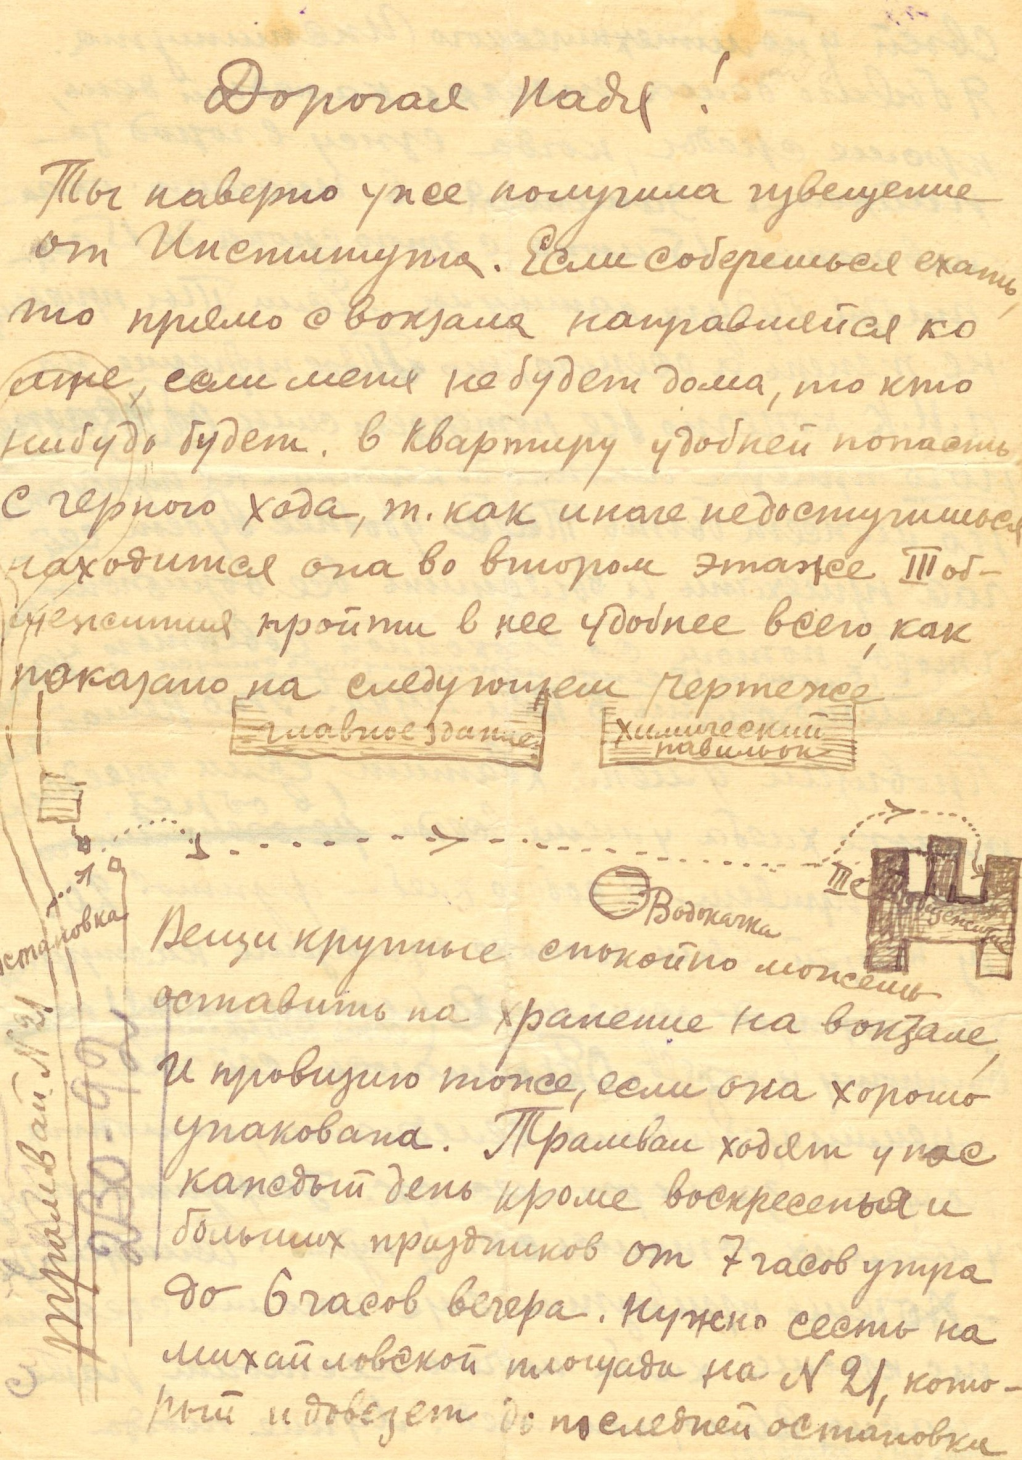 Дорогая Надя!
Ты наверно уже получила извещение
от Института. Если соберешься ехать,
то прямо с вокзала направляйся ко
мне, если меня не будет дома, то кто
нибудь будет. в квартиру удобней попасть
с черного хода, т. как иначе недостучишься
находится она во втором этаже III об-
щежития пройти в нее удобнее всего, как
показано на следующем чертеже
главное здание
химический
павильон
III общежитие
Водокачка
остановка
трамвай N 21
230-92
Вещи крупные спокойно можешь
оставить на хранение на вокзале,
и провизию тоже, если она хорошо
упакована. Трамваи ходят у нас
каждый день кроме воскресенья и
больших праздников от 7 часов утра
до 6 часов вечера. Нужно сесть на
михайловской площади на N 21, кото-
рый и довезет до последней остановки